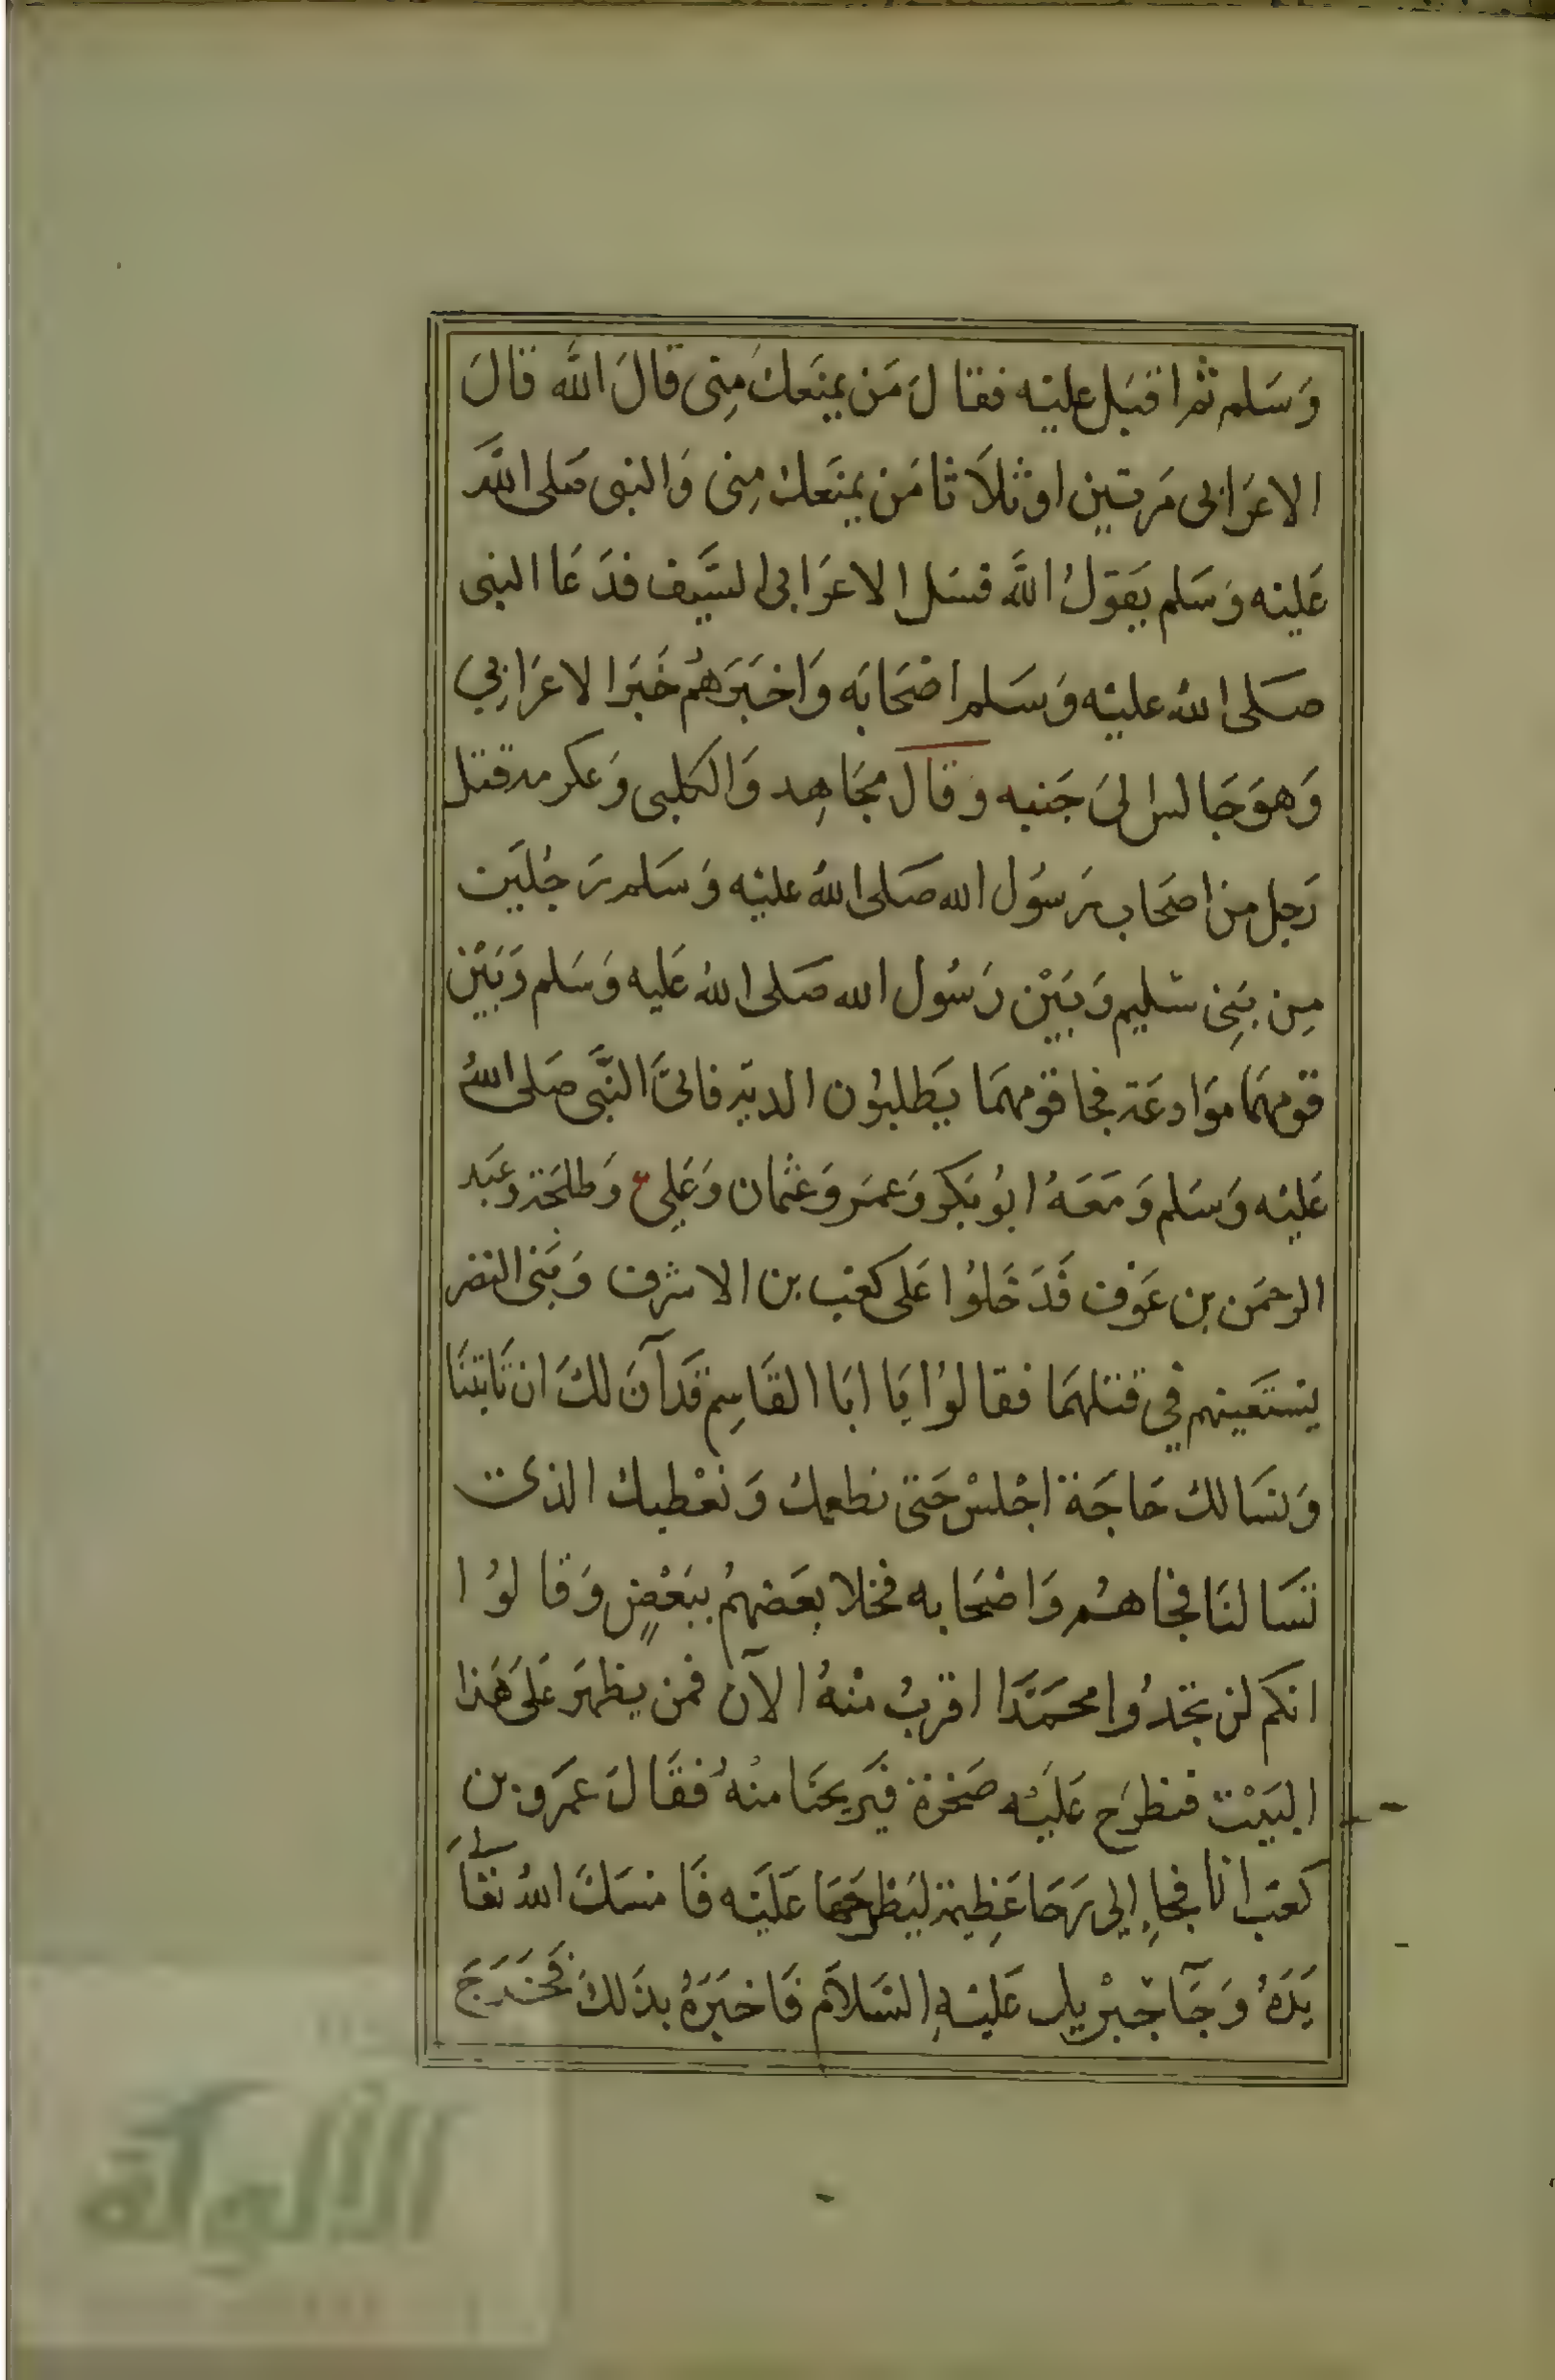 وَسَلم ثم اقبَل عليْه فقالَ مَن يمنَعكَ مِنى قالَ اللّه قالَ
الاعرَابى مَرتين اوثلَاثا مَن يمنَعكَ مِنى وَالنبى صَلى اللّه
عَليْه وَسَلم يَقولُ اللّه فسَل الاعرَابى السَّيف فدَعَا النبى
صَلى الله عليْه وَسَلم اصْحَابَه وَاخبَرَهُم خَبَر الاعرَابِي
وَهوَ جَالس الىَ جَنبه وقال مجَاهِد وَالكلبى وَعكرمه قتل
رَجل من اصحَاب رَسوُل الله صَلى اللهُ عليْه وَسَلم رَجُليَن
مِن بَنِى سَليم وَبَيْن رَسُول الله صَلى اللهُ عَليه وَسَلم وَبَيْن
قومهمَا موَادعَة فجا قوْمهمَا يَطلبوُن الدية فاتىَ النَّبى صَلى اللهُ
عَليْه وَسَلم وَمَعَهُ ابوُ بَكر وَعمَر وَعثمان وَعَلِى وَطلحَة وعَبد
الرحمَن بن عَوْف فَدَخَلوُا عَلى كعْب بن الاشرف وَبَنى النضر
يَستَعينهم فِي قتلهمَا فقالوُا يَا ابَا القَاسِم قَد آنَ لكَ ان تَاتينَا
وَنسَالكَ حَاجَة اجْلسْ حَتى نطعمكَ وَنعْطيكَ الذى
تسَالنَا فجا هُم وَاصْحَابه فخلا بعَضهمُ ببَعْضٍ وَقالوُا
انكم لن تجَدُوا محمَّدًا اقربُ منْهُ الآن فمن يظهَر عَلىَ هَذا
البَيْت فنطرَح عَليْه صَخرَة فيَريحنَا منْهُ فقَالَ عمَرو بن
كعْب انا فجاءِ الي رَحَا عَظِيمَة ليَطرحهَا عَليْه فَامسَكَ اللهُ تعَالَى
يَدَهُ وَجَآ جَبْريل عَليْهِ السَلاَم فَاخبَرَهُ بذَلكَ فَخَرَجَ
الألوكة